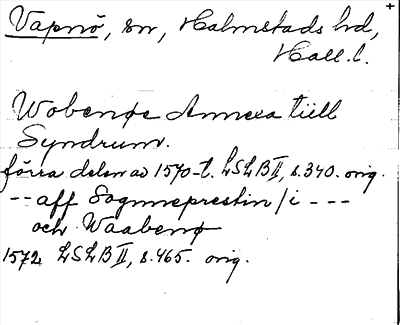 Vapnö, sn, Halmstads hd,
Hall. l.
Wobenøe Annexa tiill
Syndrum.
förra delen av 1570-t. LSLB II, s. 340. orig.
-- aff Sognneprestin / i ---
och Waabenø
1572 LSLB II, s. 465. orig.